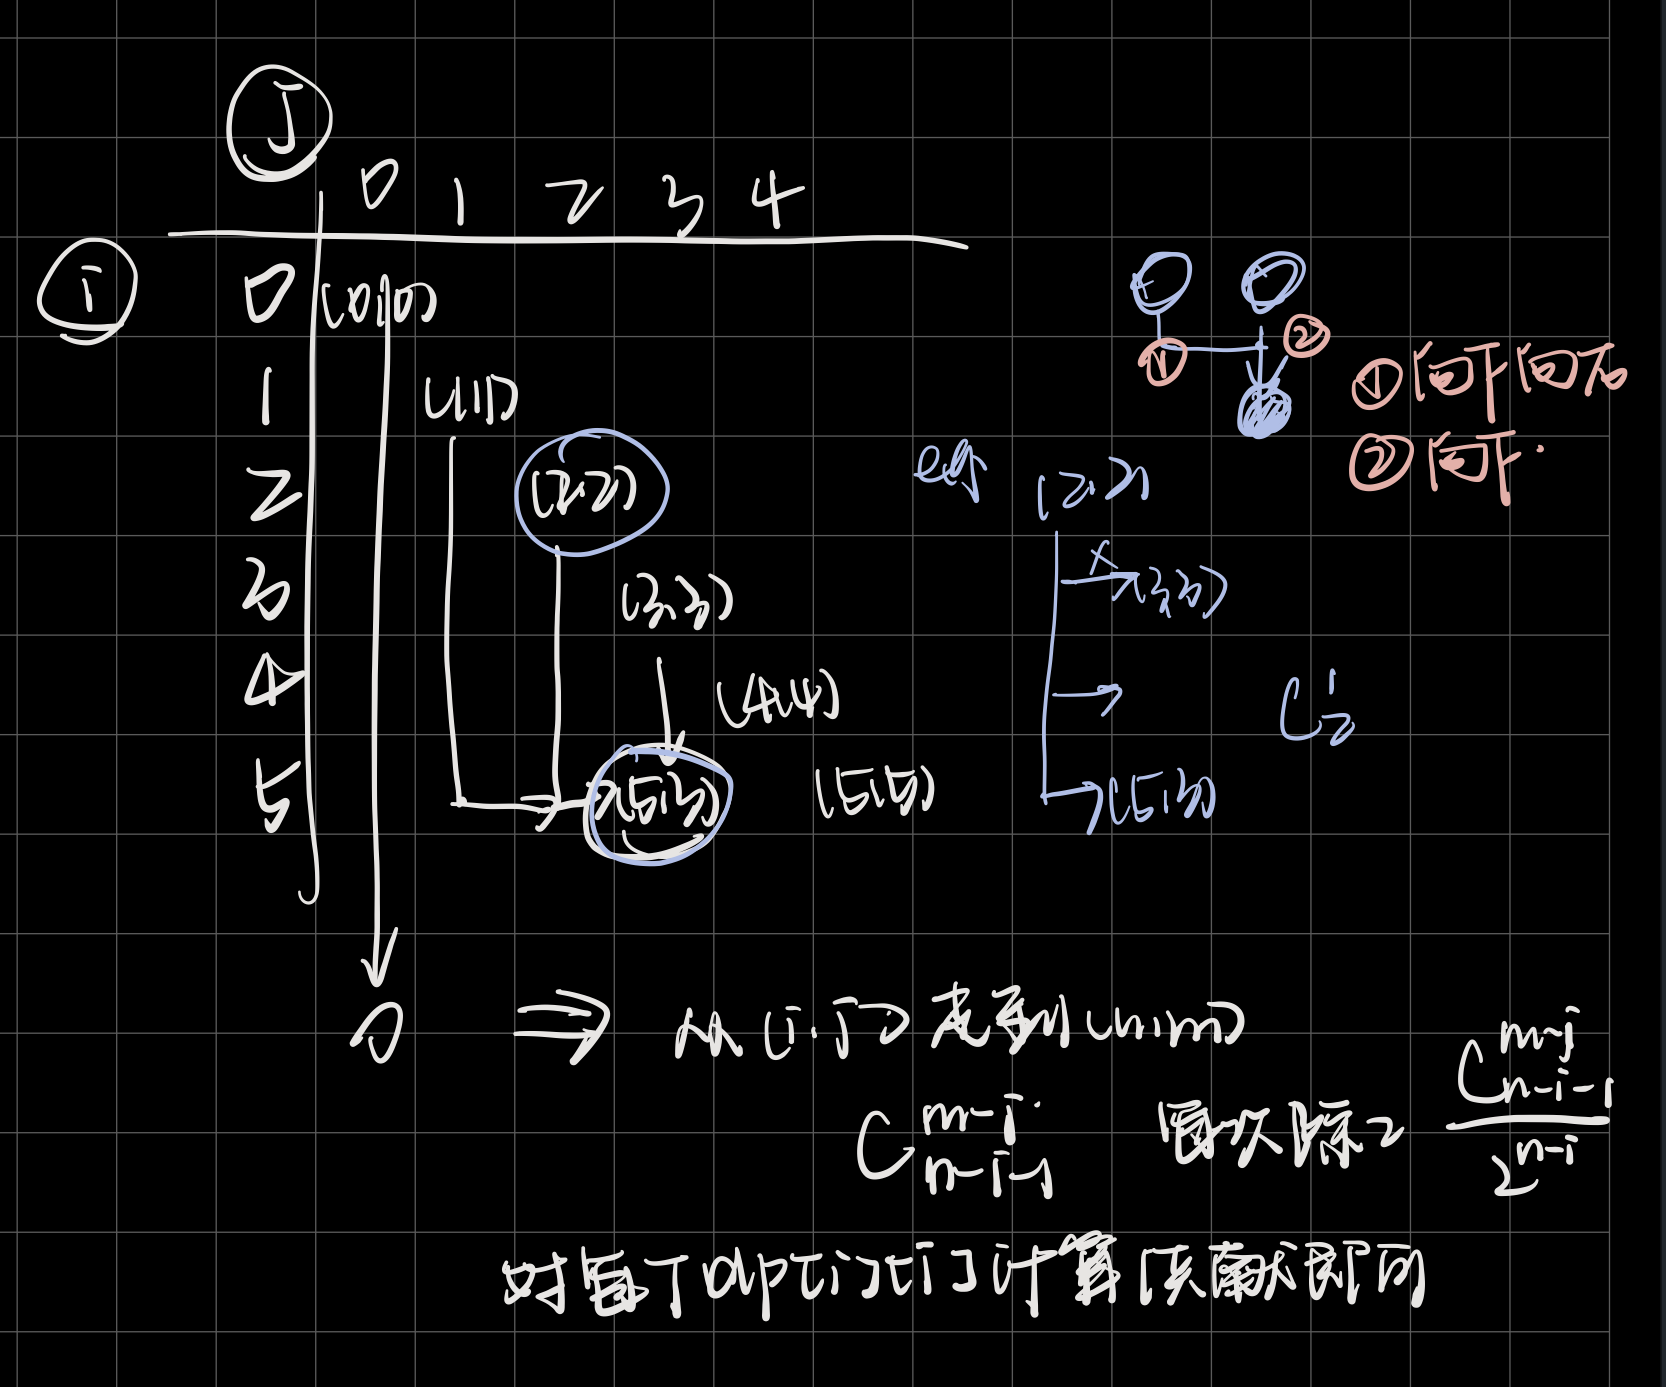 J
0 1 2 3 4
i
0 (0,0)
1 (1,1)
2 (2,2)
3 (3,3)
4 (4,4)
5 (5,3) (5,5)
① ②
① 向下向右
② 向下.
eg (2,2)
x (3,3)
C₂¹
(5,3)
0 ⇒ 从(i,j)走到(n,m)
C_{n-i-1}^{m-j} 每次除2 C_{n-i-1}^{m-j} / 2^{n-i}
对每个dp[i][i]计算贡献即可